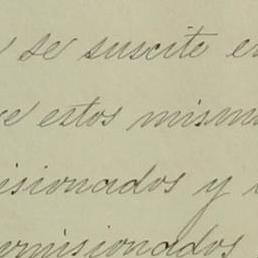 se suscite
estos mism
isionados y
misionados